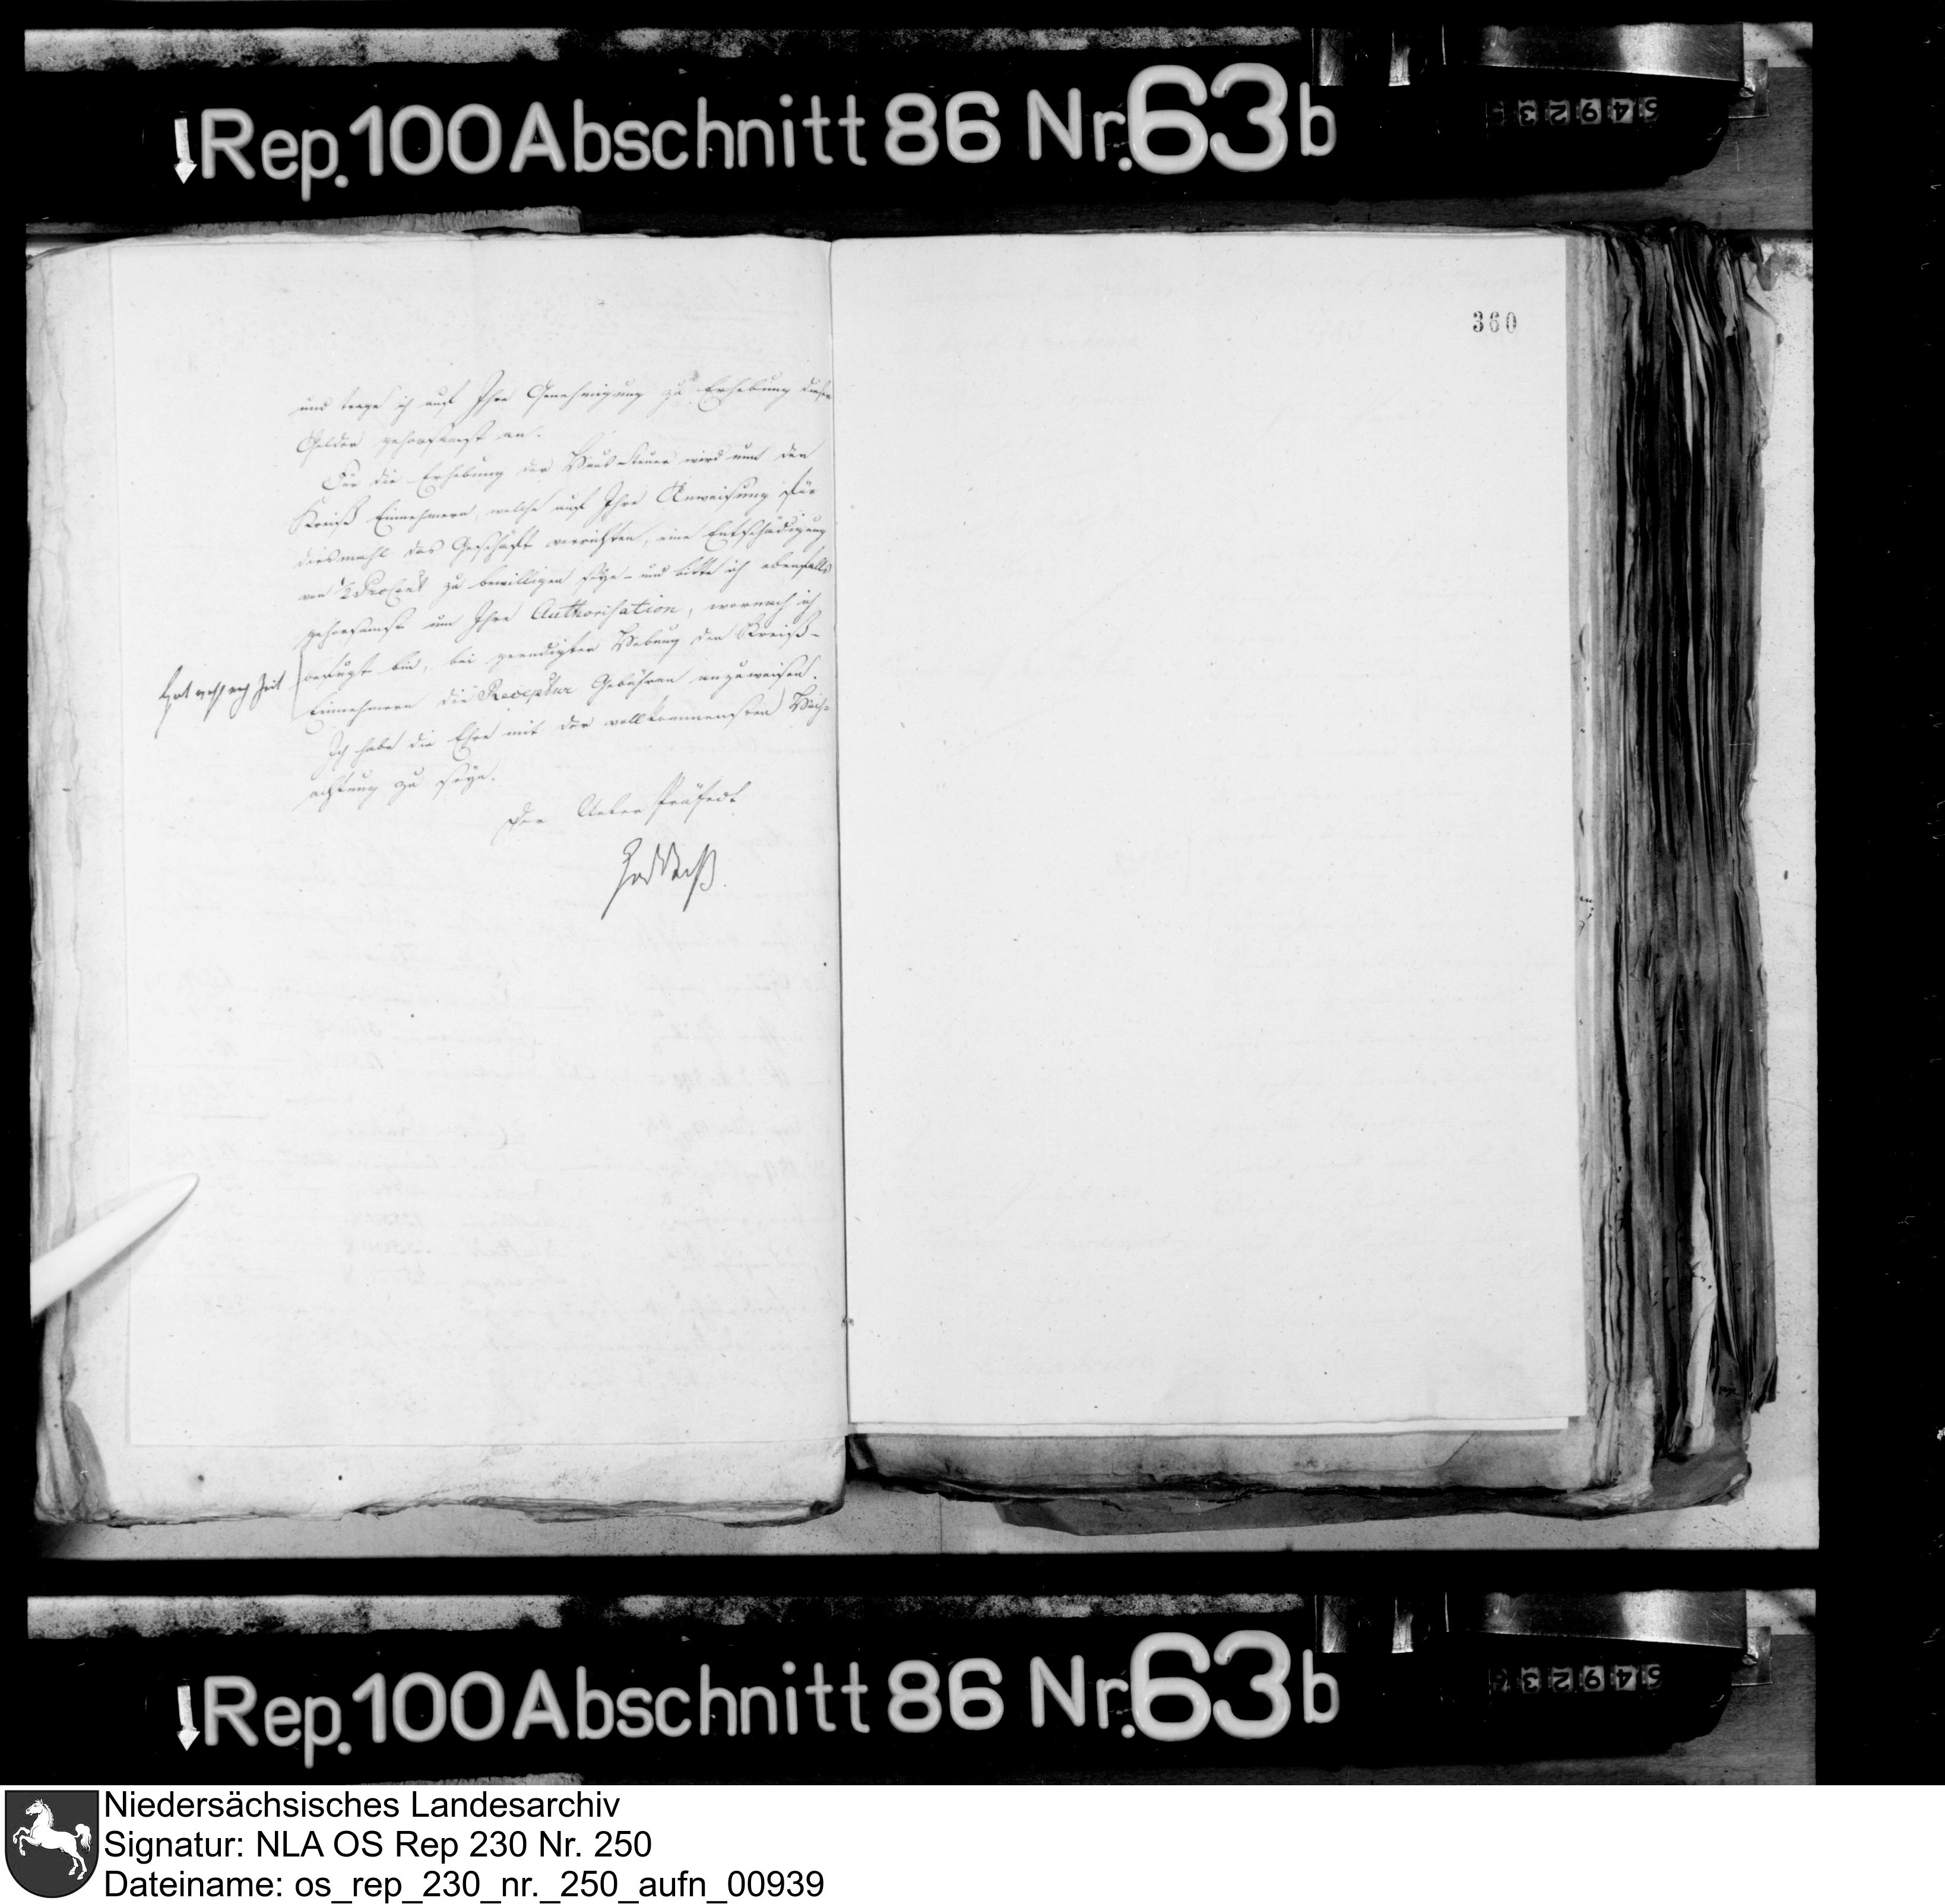 Rep. 100 Abschnitt 86 Nr. 63 b
54923
360
und trage ich auf Ihre Genehmigung zu Erhebung dieser
Gelder gehorsamst an.
Für die Erhebung der steuer wird nun den
Kreiß Einnehmern, welche auf Ihre Anweisung für
diesmahl das Geschäft verrichten, eine Entschädigung
von 2 ProCent zu bewilligen seyn – und bitte ich ebenfalls
gehorsamst um Ihre Authorisation, wornach ich
befugt bin, bei geendigter Hebung den Kreiß-
Einnehmern die Receptur Gebühren anzuweisen.
hat noch Zeit
Ich habe die Ehre mit der vollkommensten Hoch-
achtung zu seyn.
Der Unter Präfect
Rep. 100 Abschnitt 86 Nr. 63 b
54923
Niedersächsisches Landesarchiv
Signatur: NLA OS Rep 230 Nr. 250
Dateiname: os_rep_230_nr._250_aufn_00939